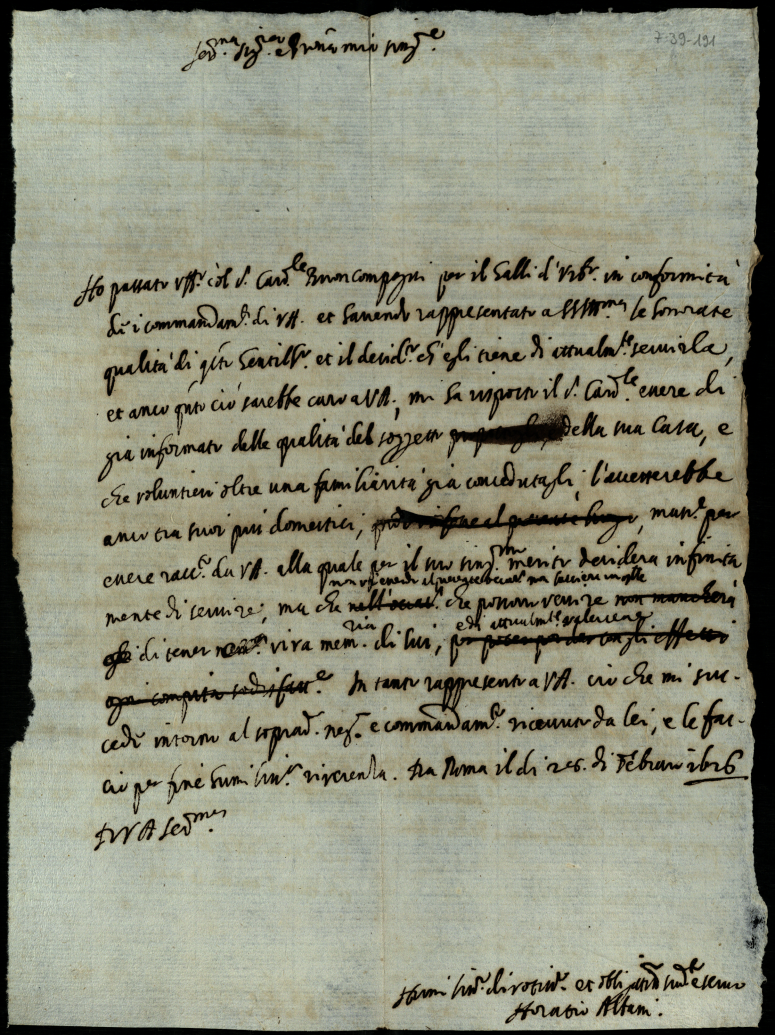 7-39-191
Ser.ma Sig.ra e Prona mia sing.e
Ho passato col S. Card.le Buoncompagni per il Galli d'Urb. in conformità
de i commandam.ti di VA. et havendo rappresentato a le honorate
qualità di q.to Gentilh. et il desid. ch'egli tiene di attualm.te servirla,
et anco q.to ciò sarebbe caro a VA., mi ha risposto il S. Card.le essere di
già informato delle qualità del soggetto della sua Casa, e
che voluntieri oltre una familiarità già concedutagli, l'accetterebbe
anco tra suoi più domestici, per
essere racc. da VA. alla quale per il suo sing.mo merito desidera infinita
mente di servire, ma che che possono venire non mancherà
di tener viva mem.ria di lui,
ogni compita In tanto rappresento a VA. ciò che mi suc-
cede intorno al soprad. neg. e commandam.to ricevuto da lei, e le fac-
cio per fine humiliss. riverenza. Da Roma il di 28. di Febraro 1626
Di VA Ser.ma
Humiliss. divotiss. et oblig. servo
Horatio Albani.